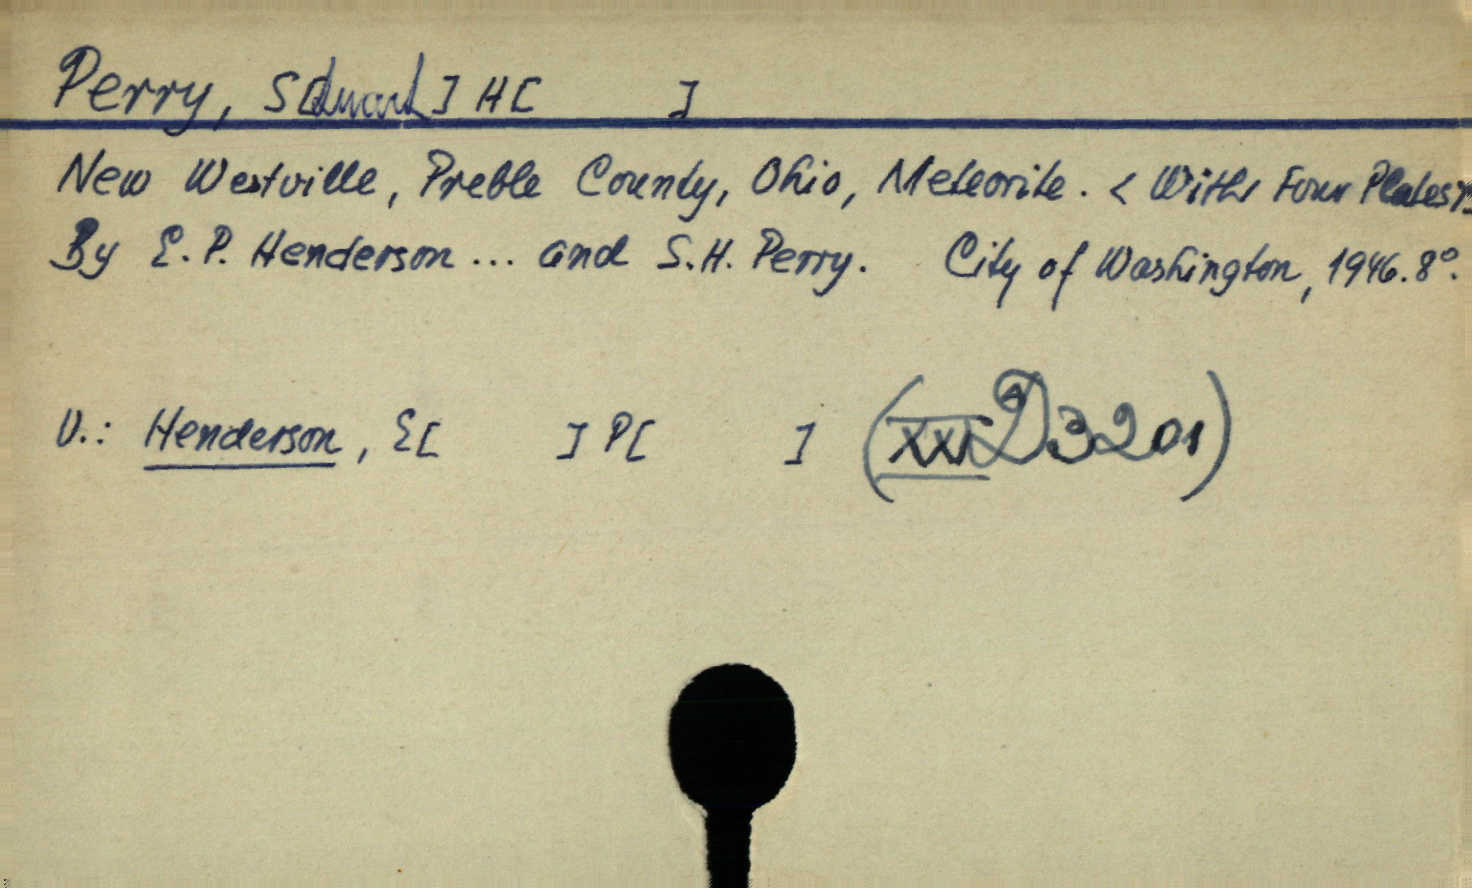 Perry, S[tuart] H[ ]
New Westville, Preble County, Ohio, Meteorite. < With Four Plates>.
By E. P. Henderson ... and S. H. Perry. City of Washington, 1946. 8°.
V.: Henderson, E[ ] P[ ] (XXI D 3201)